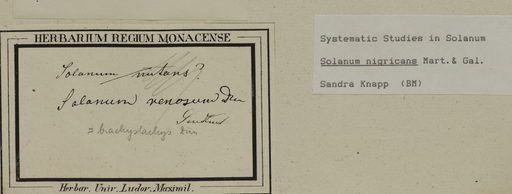 HERBARIUM REGIUM MONACENSE
Solanum nutans?
Solanum venosum Dun
= brachystachys Dun
Herbar. Univ. Ludov. Maximil.
Systematic Studies in Solanum
Solanum nigricans Mart.& Gal.
Sandra Knapp (BM)